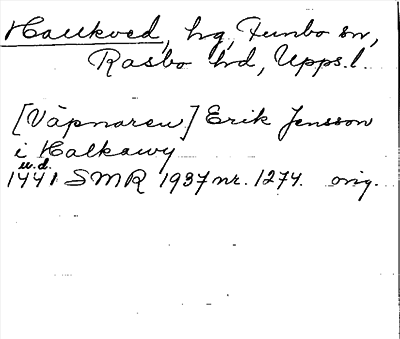 Haukved, hg, Funbo sn,
Rasbo hd, Upps.l.
[Väpnaren] Erik Jensson
i Halkawy
u.d.
1441 SMR 1937 nr. 1274. orig.